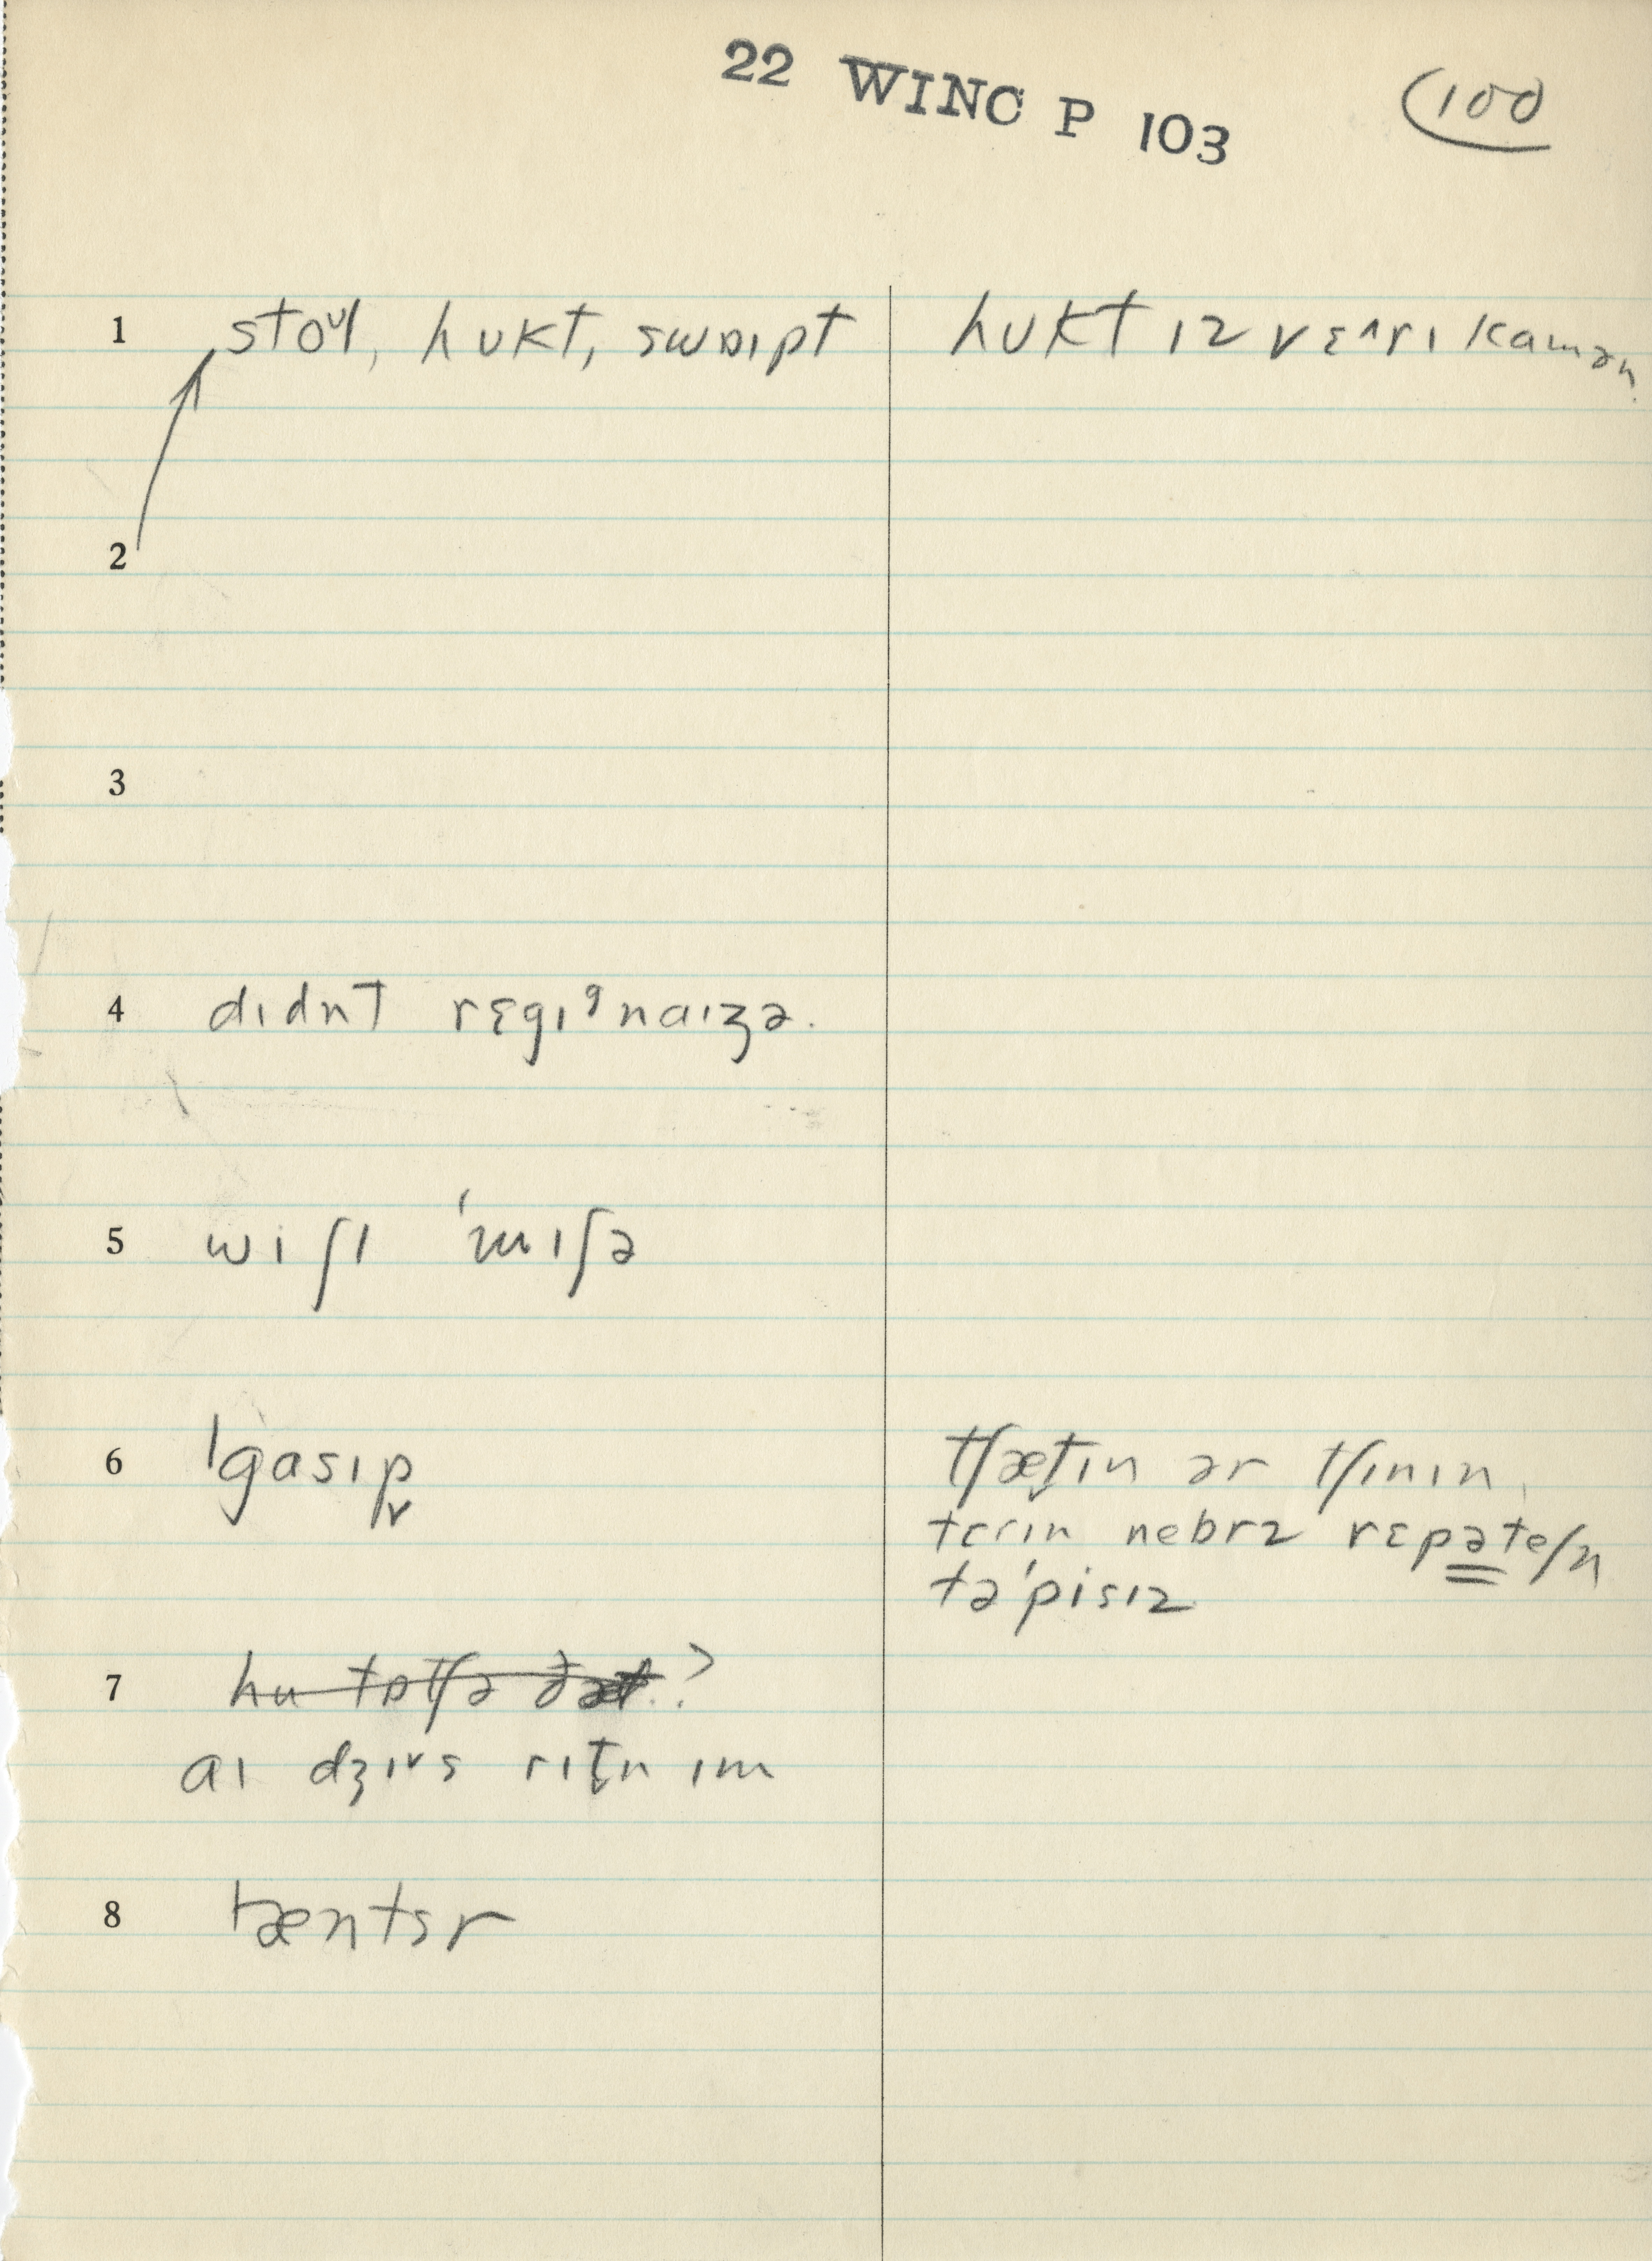 22 WINC P 103
100
1 stoᶷl, hʊkt, swɒɪpt
hʊkt ɪz vɛ^rɪ kamən
2
3
4 dɪdnt rɛgɪᵊnaɪʒə.
5 wiʃɪ ˈmɪʃə
6 ˈgasɪp̬
tʃæt̬ɪn ər tʃɪnɪn,
tɛrɪn nebrz rɛpəteʃn
təˈpisɪz
7 hu tɒtʃə ðæt.?
aɪ dʒɪᵛs rɪt̬n ɪm
8 ræntsr